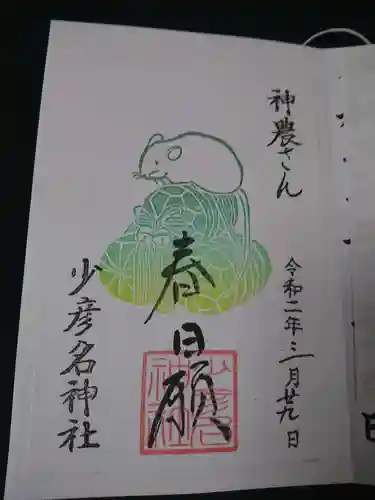 神農さん
令和二年三月廿九日
春日願
少彦名神社